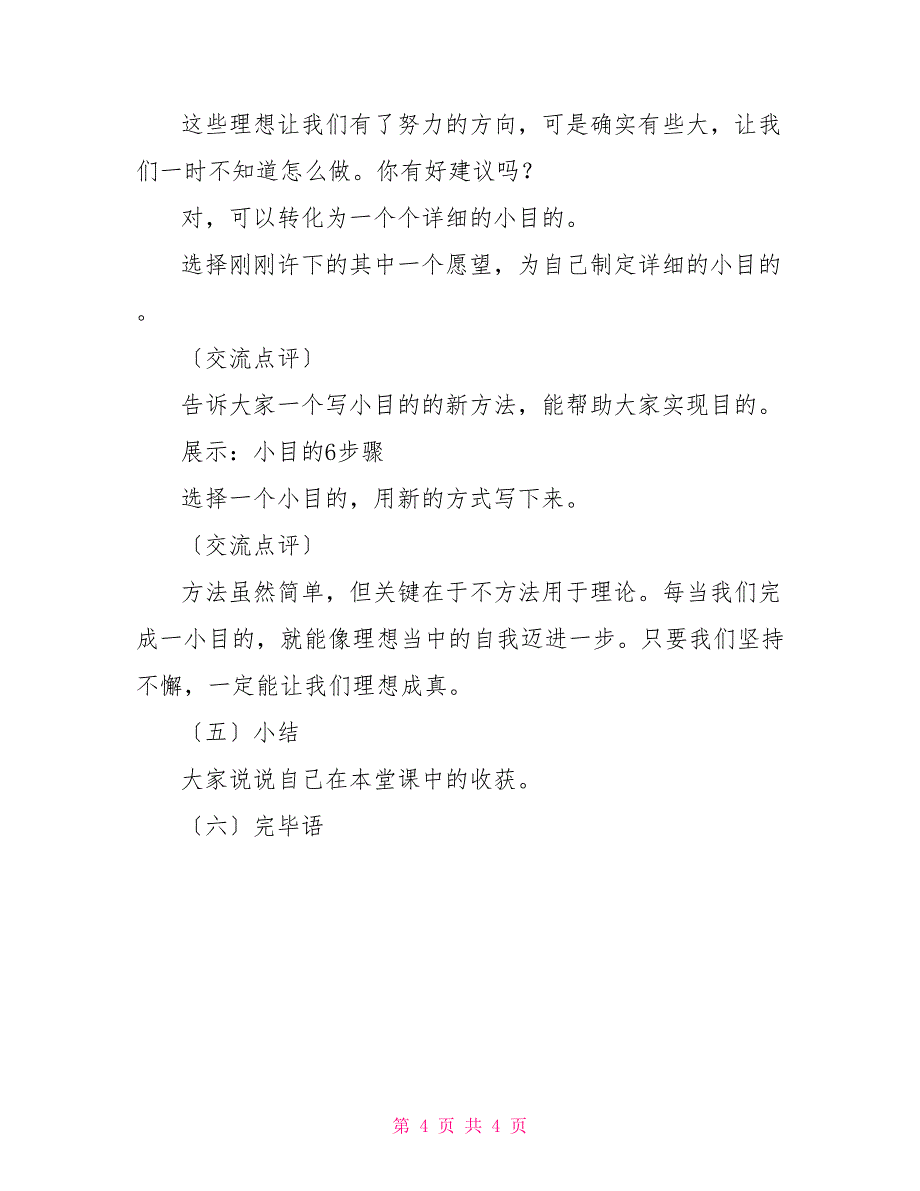 这些理想让我们有了努力的方向，可是确实有些大，让我
们一时不知道怎么做。你有好建议吗？
对，可以转化为一个个详细的小目的。
选择刚刚许下的其中一个愿望，为自己制定详细的小目的
。
〔交流点评〕
告诉大家一个写小目的的新方法，能帮助大家实现目的。
展示：小目的6步骤
选择一个小目的，用新的方式写下来。
〔交流点评〕
方法虽然简单，但关键在于不方法用于理论。每当我们完
成一小目的，就能像理想当中的自我迈进一步。只要我们坚持
不懈，一定能让我们理想成真。
〔五〕小结
大家说说自己在本堂课中的收获。
〔六〕完毕语
第 4 页 共 4 页